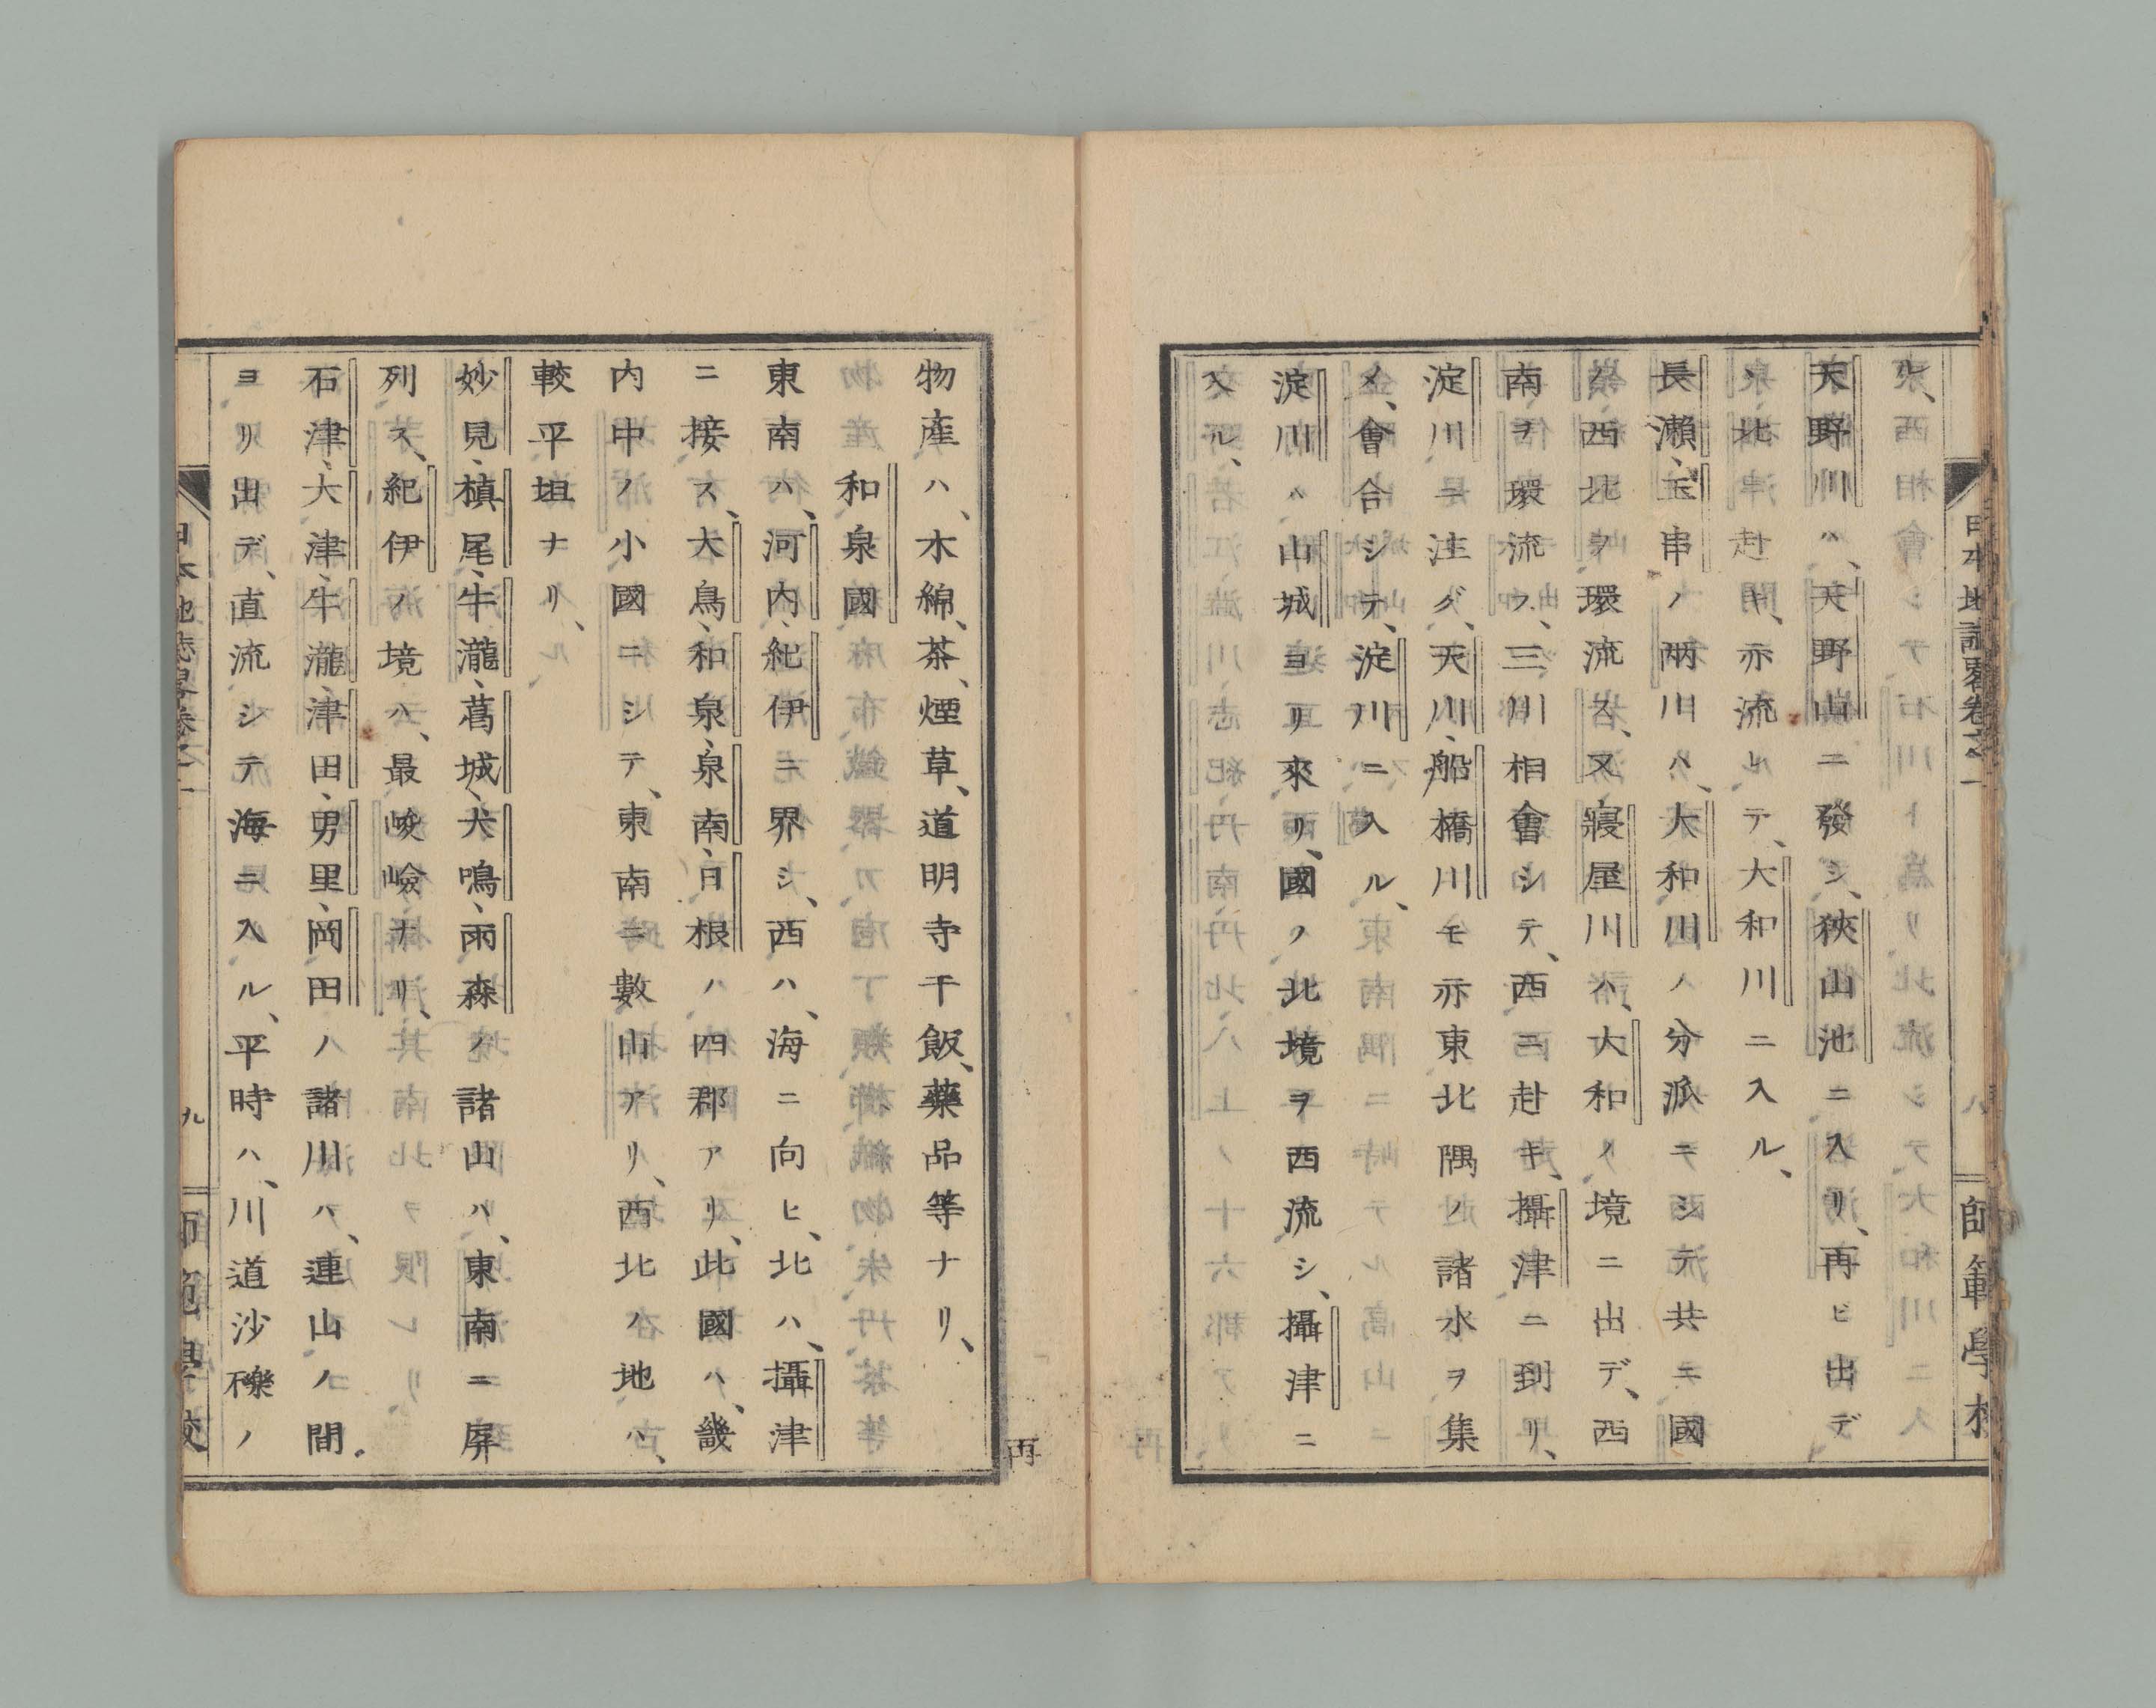 日本地誌略卷之一
八
師範學校
ル、
天野川ハ、天野山ニ發シ、狹山池ニ入リ、再ビ出デ
、北ニ赴キ、亦流レテ、大和川ニ入ル、
長瀬、玉串ノ兩川ハ、大和川ノ分派ニシテ共ニ國
ノ西北ヲ環流ス、又寢屋川ハ、大和ノ境ニ出デ、西
南ヲ環流ス、三川相會シテ、西ニ赴キ、攝津ニ到リ、
淀川ニ注グ、天川、船橋川モ亦東北隅ノ諸水ヲ集
メ、會合シテ、淀川ニ入ル、
淀川ハ山城ヨリ來リ、國ノ北境ヲ西流シ、攝津ニ
入ル、
物產ハ、木綿、茶、煙草、道明寺干飯、藥品等ナリ、
和泉國
東南ハ、河內、紀伊ニ界シ、西ハ、海ニ向ヒ、北ハ、攝津
ニ接ス、大鳥、和泉、泉南、日根ノ四郡アリ、此國ハ、畿
內中ノ小國ニシテ、東南ニ數山アリ、西北ノ地ハ、
較平坦ナリ、
妙見、槇尾、牛瀧、葛城、犬鳴、雨森ノ諸山ハ、東南ニ屏
列ス、紀伊ノ境ハ、最峻嶮ナリ、
石津、大津、牛瀧、津田、男里、岡田ノ諸川ハ、連山ノ間
ヨリ出デ、直流シテ海ニ入ル、平時ハ、川道沙礫ノ
日本地誌略卷之一
九
師範學校
再